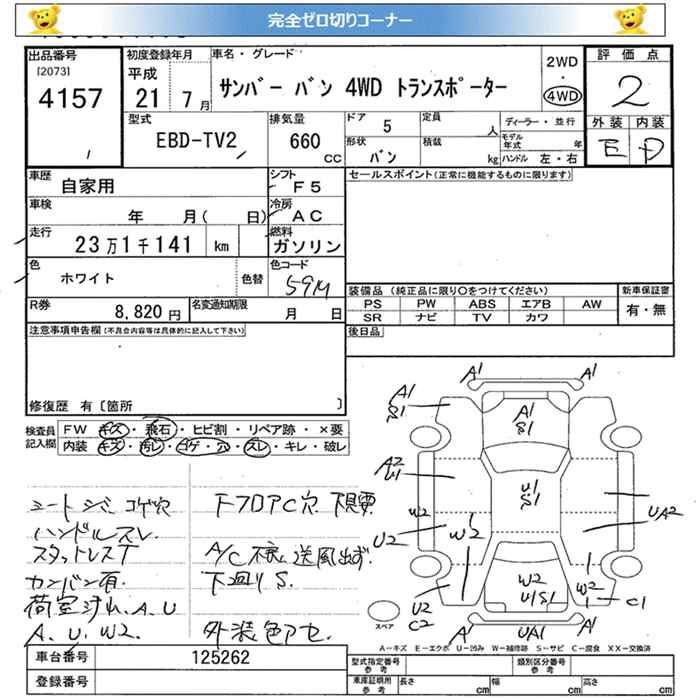 完全ゼロ切りコーナー
出品番号
[2073]
4157
初度登録年月
平成
21年 7月
車名・グレード
サンバー バン 4WD トランスポーター
2WD
・
4WD
評価点
2
外装 内装
E D
型式
EBD-TV2
排気量
660
CC
ドア
5
定員
人
形状
バン
積載
kg
ディーラー・並行
モデル年式
年
ハンドル 左・右
車歴
自家用
シフト
F5
車検
年 月( 日)
冷房
AC
走行
23万1千141 km
燃料
ガソリン
色
ホワイト
色替
色コード
59M
R券
8,820円
名変通知期限
月 日
注意事項申告欄(不具合内容等は具体的に記入して下さい)
修復歴 有〔箇所 〕
セールスポイント(正常に機能するものに限ります)
装備品(純正品に限り○をつけてください)
PS PW ABS エアB AW
SR ナビ TV カワ
新車保証書
有・無
後日品
検査員記入欄
FW キズ・飛石・ヒビ割・リペア跡・×要
内装 キズ・汚レ・コゲ・穴・スレ・キレ・破レ
シートシミ コゲ穴
ハンドルスレ
スタットレスT
カンバン有
荷室汚れ、A、U
A、U、W2
下フロアC穴 下見要
A/C不良、送風出ず
下回りS
外装色アセ
A1 A1
A1 S1
A1 S1
A2 U1
U1 S1
W2
U2
W2
UA2
W2 U1S1
W2
C1
U2 C2
A1
UA1
A1
スペア
A-キズ E-エクボ U-凹み W-補修跡 S-サビ C-腐食 XX-交換済
車台番号
125262
登録番号
型式指定番号
参考
類別区分番号
参考
車庫証明用
参考
長さ cm
幅 cm
高さ cm